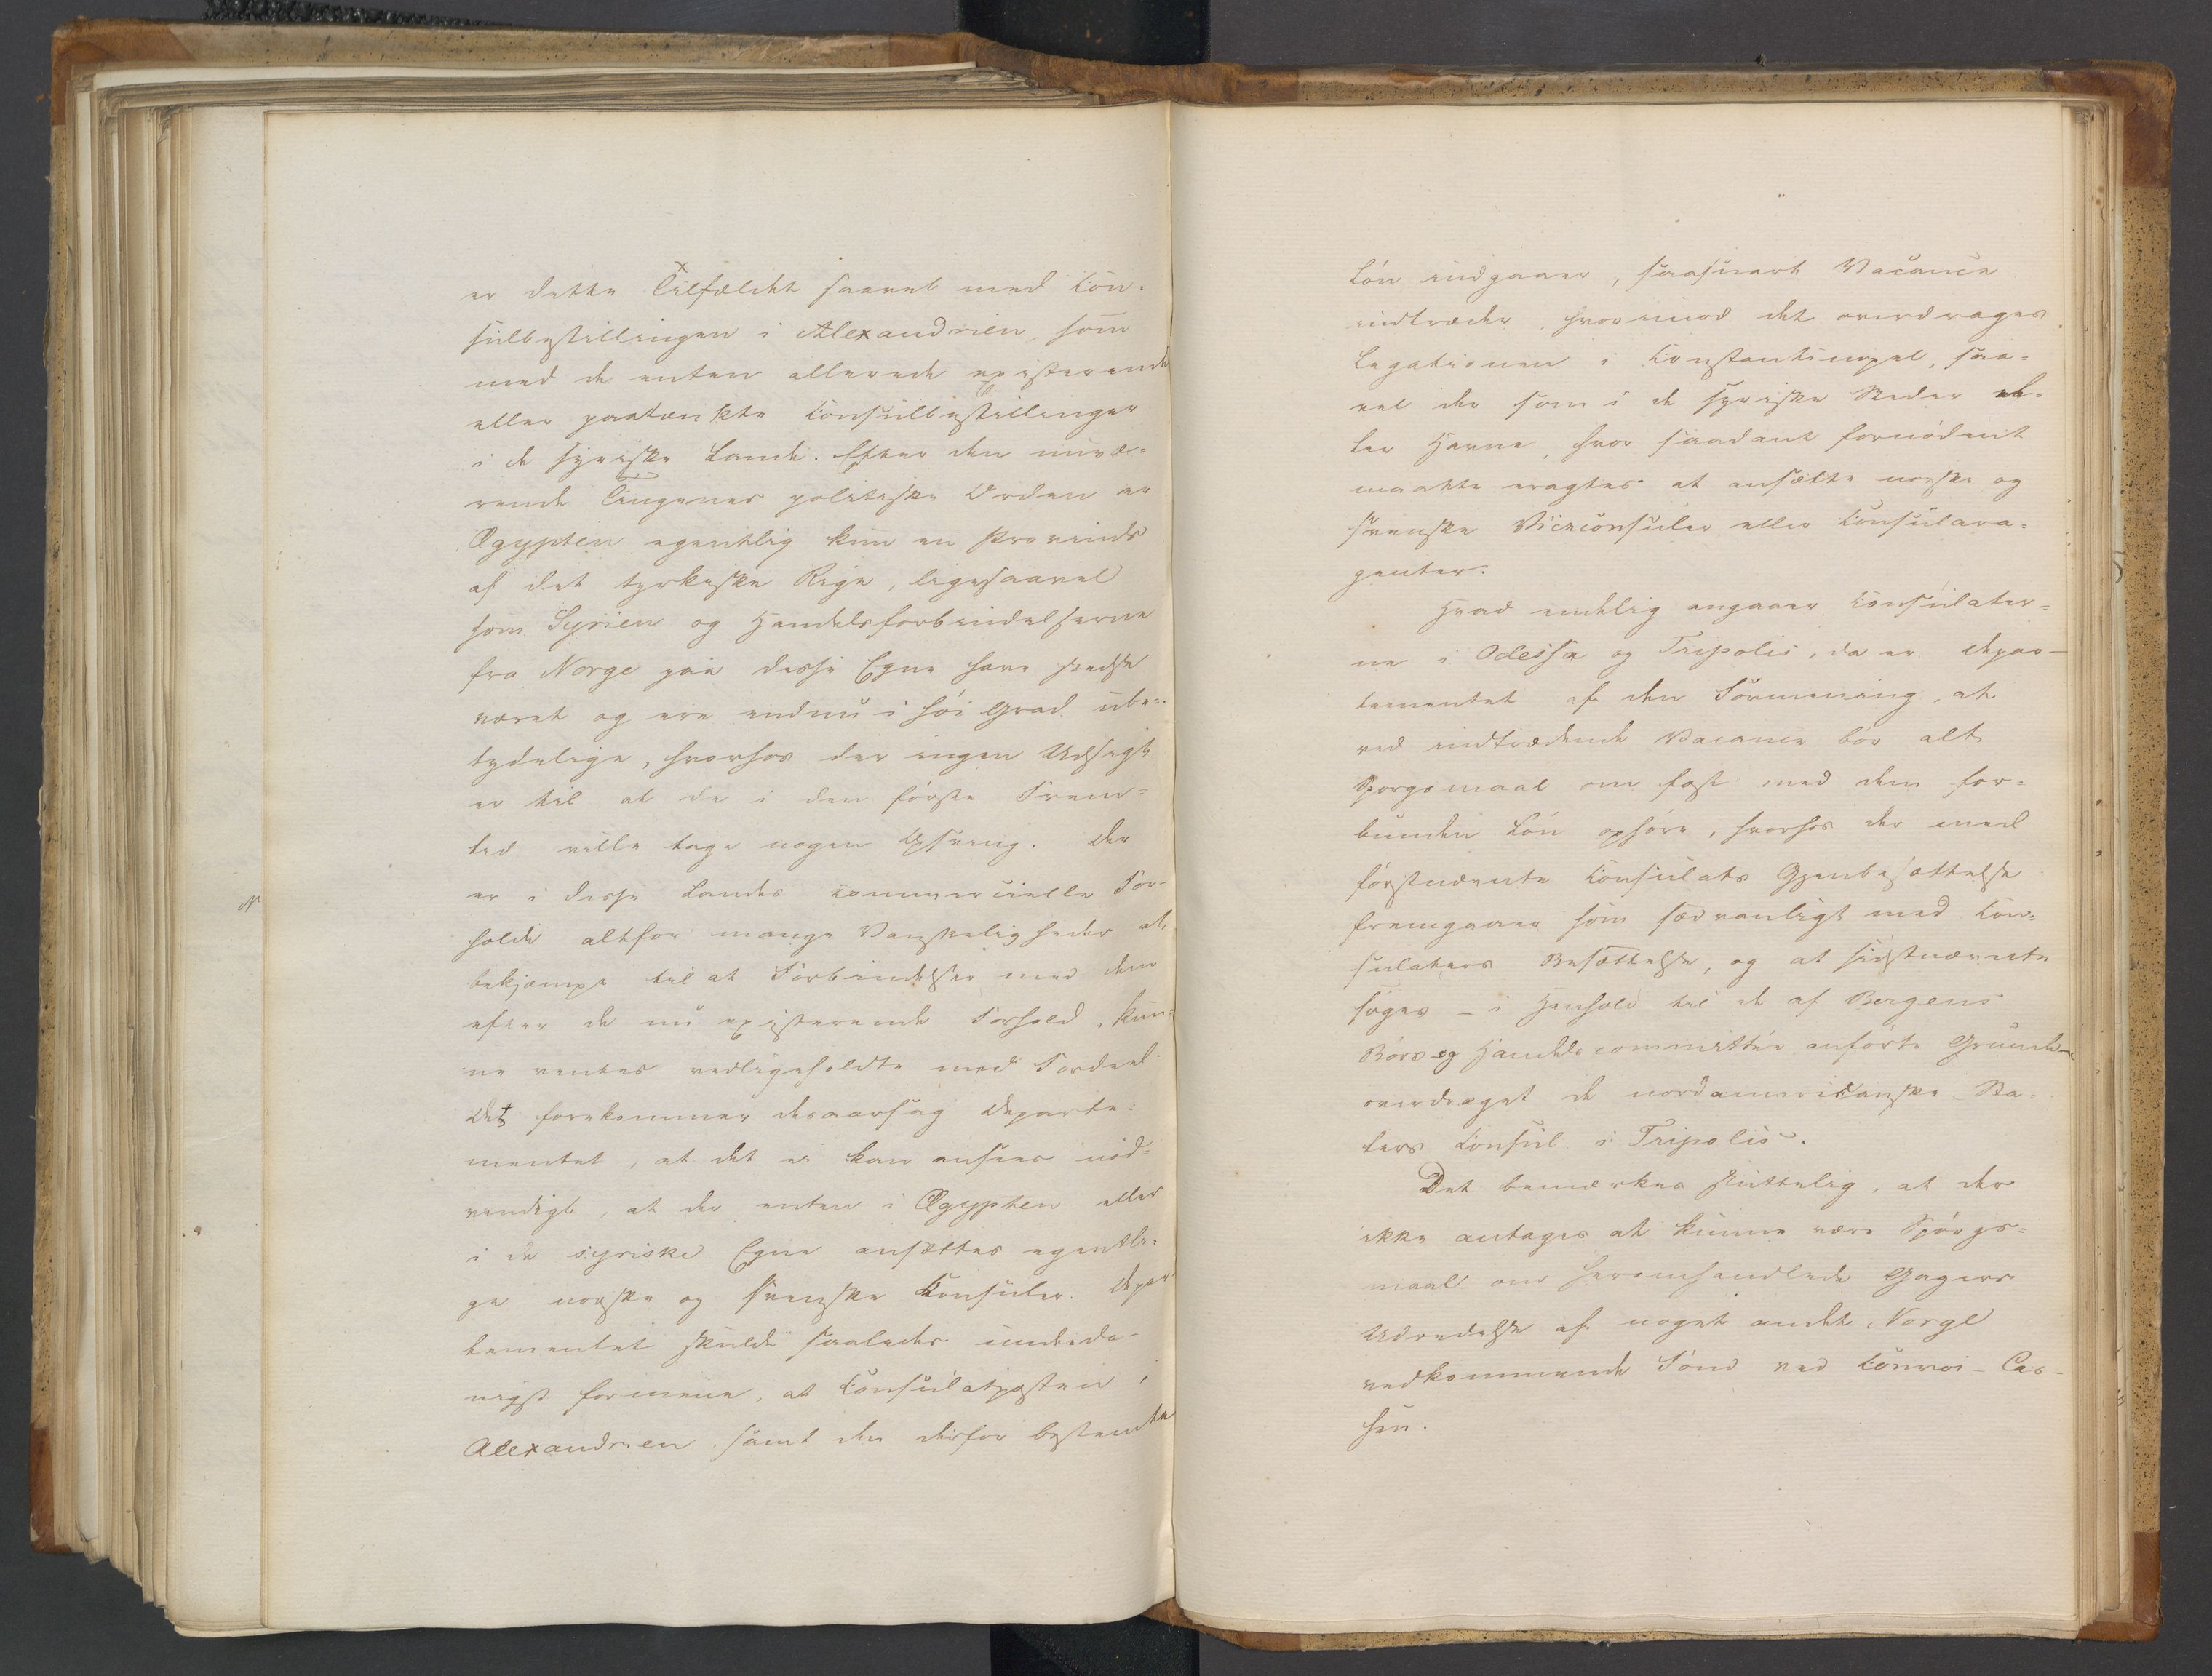 er dette Tilfældet saavel med Con-
sulbestillingen i Alexandrien, som
med de enten allerede existerende
eller paatænkte Consulbestillinger
i de syriske Lande. Efter den nuvæ-
rende Tingenes politiske Orden er
Ægypten egentlig kun en Provinds
af det tyrkiske Rige, ligesaavel
som Syrien og Handelsforbindelserne
fra Norge paa disse Egne have stedse
været og ere endnu i høi Grad ube-
tydelige, hvorhos der ingen Udsigt
er til at de i den første Frem-
tid ville tage nogen Opsving. Der
er i disse Landes commercielle For-
holde altfor mange Vanskeligheder at
bekjæmpe til at Forbindelser med dem
efter de nu existerende Forhold, kun-
ne ventes vedligeholdte med Fordeel
Det forekommer desaarsag Departe-
mentet, at det ei kan ansees nød-
vendigt, at der enten i Ægypten eller
i de syriske Egne ansættes egentli-
ge norske og svenske Consuler. Depar-
tementet skulde saaledes underda-
nigst formene, at Consulatposten i
Alexandrien samt den derfor bestemte
Løn indgaaer, saasnart Vacance
indtræder, hvorimod det overdrages
Legationen i Constantinopel, saa-
vel der som i de syriske Stæder el-
ler Havne, hvor saadant fornødent
maatte eragtes at ansætte norske og
svenske Viceconsuler eller Consulara-
genter.
Hvad endelig angaaer Consulater-
ne i Odessa og Tripolis, da er Depar-
tementet af den Formening, at
ved indtrædende Vacance bør alt
Spørgsmaal om fast med dem for-
bunden Løn ophøre, hvorhos der med
førstnævnte Consulats Gjenbesættelse
fremgaaer som sædvanligt med Con-
sulaters Besættelse, og at sidstnævnte
søges - i Henhold til de af Bergens
Børs og Handelscommittée anførte Grunde -
overdraget de nordamericanske Sta-
ters Consul i Tripolis.
Det bemærkes sluttelig, at der
ikke antages at kunne være Spørgs-
maal om heromhandlede Gagers
Udredelse af noget andet Norge
vedkommende Fond ved Convoi-Cas-
sen.